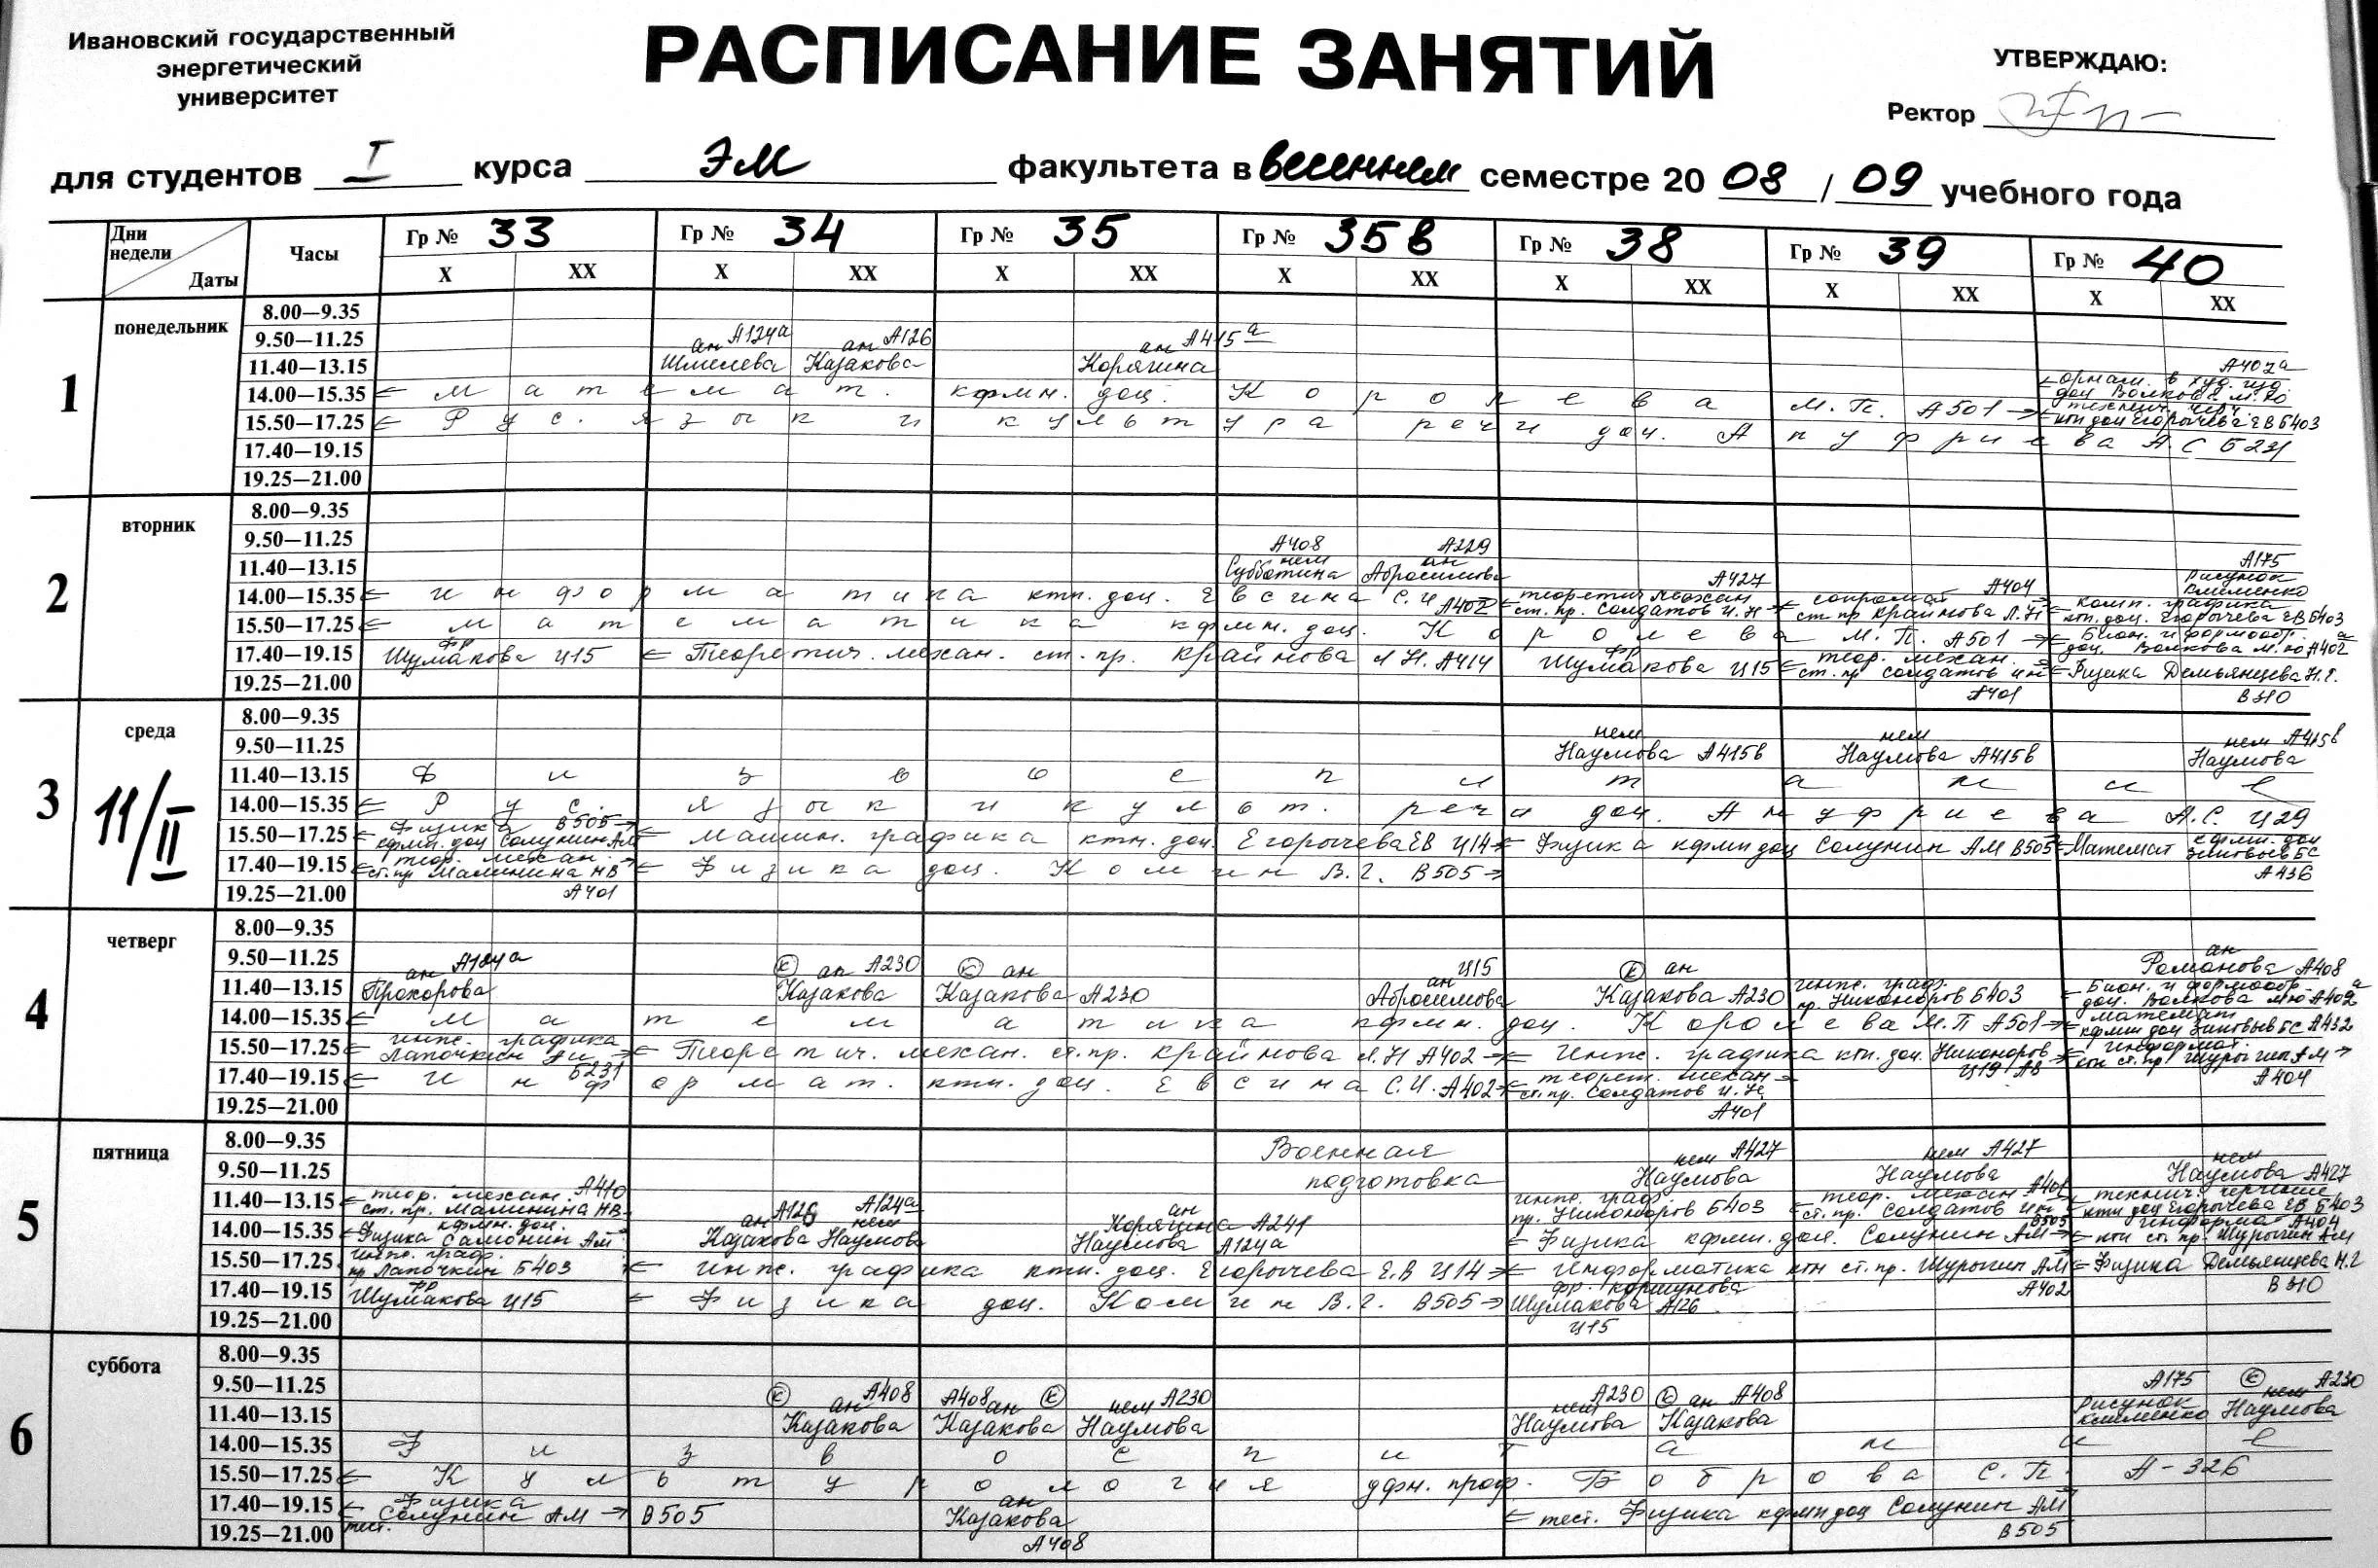 Ивановский государственный
энергетический
университет
РАСПИСАНИЕ ЗАНЯТИЙ
УТВЕРЖДАЮ:
Ректор
для студентов I курса ЭМ факультета в весеннем семестре 20 08 / 09 учебного года
Дни недели Даты Часы Гр № 33 Гр № 34 Гр № 35 Гр № 35в Гр № 38 Гр № 39 Гр № 40
X XX X XX X XX X XX X XX X XX X XX
1 понедельник
8.00—9.35
9.50—11.25 ан А124а ан А126 ан А415а
11.40—13.15 Шмелева Казакова Корягина А402а
14.00—15.35 математ. кфмн. доц. Королева М.П. А501 орнам. в худ. изд. доц Волкова М.Ю
15.50—17.25 Рус. язык и культура речи доц. Ануфриева А.С Б231 технич. черч. ктн доц Егорычева ЕВ Б403
17.40—19.15
19.25—21.00
2 вторник
8.00—9.35
9.50—11.25 А408 А229
11.40—13.15 нем Субботина ан Абросимова А175
14.00—15.35 информатика ктн. доц. Евсина С.И А402 теоретич механ ст. пр. Солдатов И.Н А427 сопромат ст пр Крайнова Л.Н А404 Рисунок Клименко комп. графика ктн. доц. Егорычева ЕВ Б403
15.50—17.25 математика кфмн. доц. Королева М.П. А501 Бион. и формообр. доц. Волкова М.Ю А402а
17.40—19.15 фр Шумакова Ц15 Теоретич. механ. ст. пр. Крайнова Л Н. А414 фр Шумакова Ц15 теор. механ. ст. пр Солдатов ин А401 Физика Демьянцева Н.Г. В310
19.25—21.00
3 среда 11/II
8.00—9.35
9.50—11.25 нем Наумова А415в нем Наумова А415в нем А415в Наумова
11.40—13.15 Физвоспитание
14.00—15.35 Рус. язык и культ. речи доц. Ануфриева А.С. Ц29
15.50—17.25 Физика В505 кфмн. доц Солунин АМ Машин. графика ктн. доц. Егорычева ЕВ Ц14 Физика кфмн доц Солунин АМ В505 Математ кфмн. доц Зиновьев БС А436
17.40—19.15 теор. механ. ст. пр Малинина НВ А401 Физика доц. Комин В.Г. В505
19.25—21.00
4 четверг
8.00—9.35
9.50—11.25 ан А124а ан А230 ан Ц15 ан ан
11.40—13.15 Прохорова Казакова Казакова А230 ан Абросимова Казакова А230 инж. граф. пр. Никоноров Б403 Романова А408
14.00—15.35 математика кфмн. доц. Королева М.П А501 Бион. и формообр. доц. Волкова МЮ А402а
15.50—17.25 инж. графика Лапочкин Б231 Теоретич. механ. ст. пр. Крайнова Л.Н А402 Инж. графика ктн. доц. Никоноров Ц19 АВ математ кфмн доц Зиновьев БС А432
17.40—19.15 информат. ктн. доц. Евсина С.И. А402 теорет. механ ст. пр. Солдатов И.Н. А401 информат. ктн ст. пр. Шурыгин АМ А404
19.25—21.00
5 пятница
8.00—9.35 Военная нем А427 нем А427 нем
9.50—11.25 подготовка Наумова Наумова Наумова А427
11.40—13.15 теор. механ. А410 ст. пр. Малинина НВ инж. граф. пр. Никоноров Б403 теор. механ А401 ст. пр. Солдатов ин технич. черчение ктн доц Егорычева ЕВ Б403
14.00—15.35 кфмн. доц. Физика Солонин АМ ан А126 Казакова нем А124а Наумова ан Корягина А241 Наумова А124а Физика кфмн. доц. Солунин АМ В505 информат А404 ктн ст. пр. Шурыгин АМ
15.50—17.25 инж. граф. пр Лапочкин Б403 инж. графика ктн. доц. Егорычева Е.В Ц14 Информатика ктн ст. пр. Шурыгин АМ А402 Физика Демьянцева Н.Г В310
17.40—19.15 фр Шумакова Ц15 Физика доц. Комин В.Г. В505 фр. Коршунова Шумакова А126 Ц15
19.25—21.00
6 суббота
8.00—9.35
9.50—11.25 ан А408 А408 ан нем А230 А230 нем ан А408 А175 нем А230
11.40—13.15 Казакова Казакова Наумова Наумова Казакова Рисунок Клименко Наумова
14.00—15.35 Физвоспитание
15.50—17.25 Культурология дфн. проф. Боброва С.П. А-326
17.40—19.15 Физика Солунин АМ В505 ан Казакова А408 тест. Физика кфмн доц Солунин АМ В505
19.25—21.00 тест.